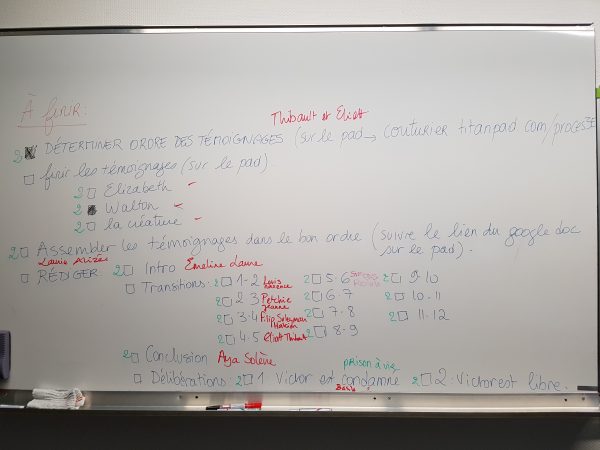 À finir:
Thibault et Eliott
2 □ DÉTERMINER ORDRE DES TÉMOIGNAGES (sur le pad → couturier titanpad com/proces3E
□ finir les témoignages (sur le pad)
2 □ Elizabeth
2 Walton
2 □ la créature
2 □ Assembler les témoignages dans le bon ordre (suivre le lien du google doc
sur le pad).
□ RÉDIGER 2 □ Intro Emeline Laure
□ Transitions: 2 □ 1-2 Louis 2 □ 5-6 2 □ 9-10
2 □ 2-3 Petchie Jeanne 2 □ 6-7 2 □ 10-11
2 □ 3-4 Filip 2 □ 7-8 2 □ 11-12
2 □ 4-5 Eliott Thibault 2 □ 8-9
2 □ Conclusion Aya Solène
prison à vie
□ Délibérations: 2 □ 1. Victor est condamné 2 □ 2. Victor est libre.